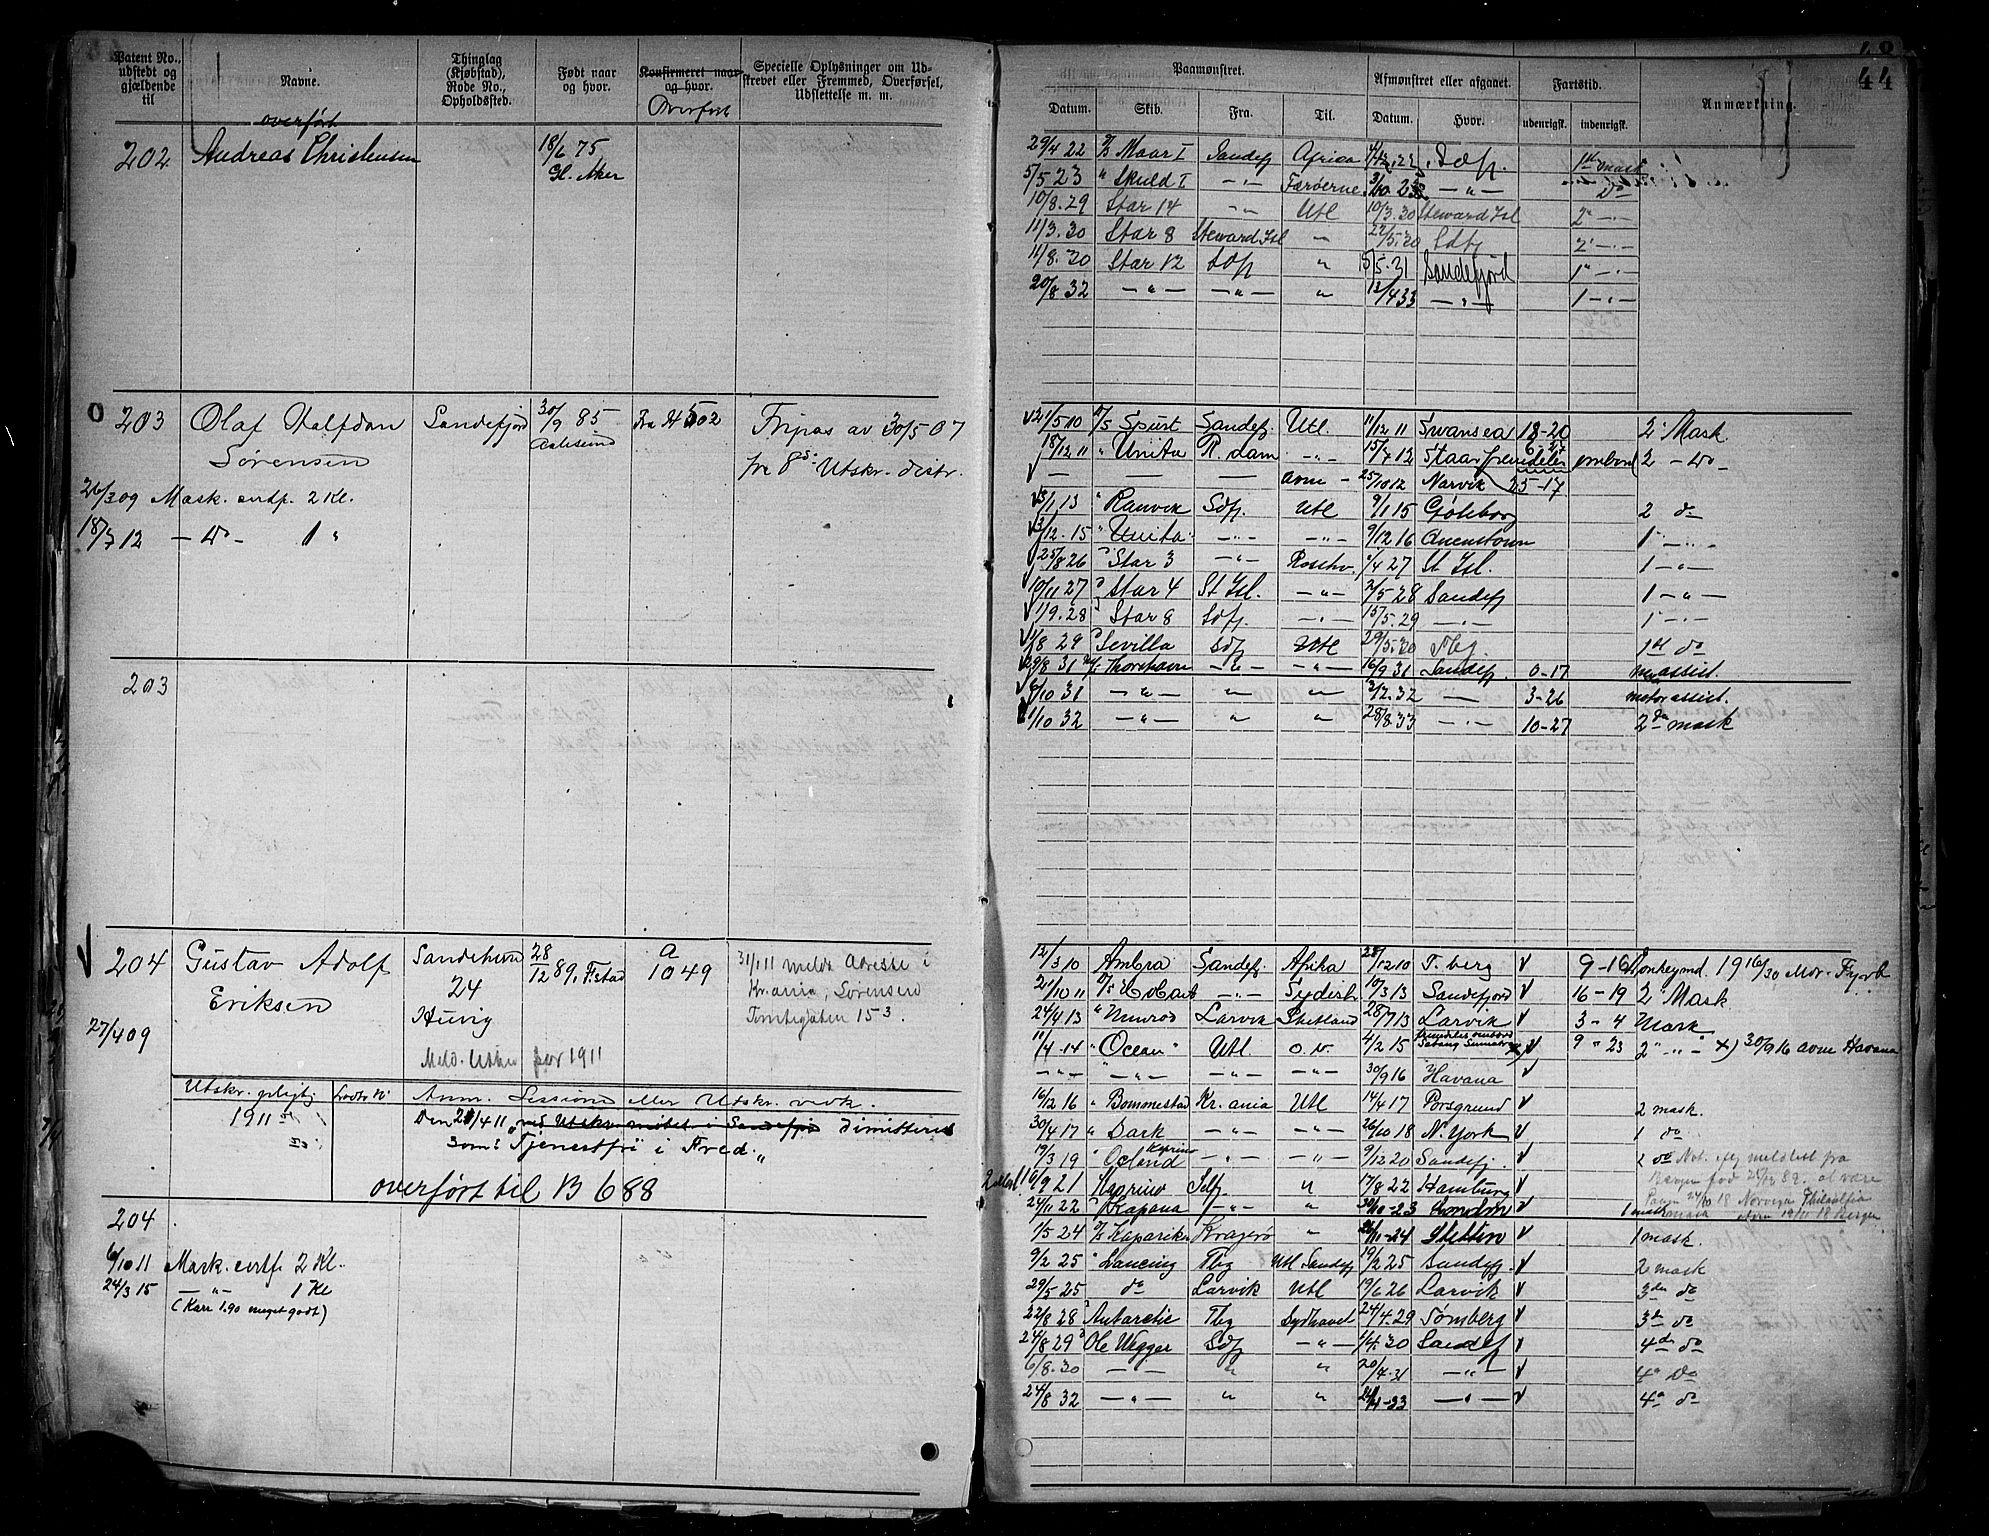 Patent No., udstedt og gjældende til
Navne.
Thinglag (Kjøbstad), Rode No., Opholdssted.
Født naar og hvor.
Konfirmeret naar og hvor.
Overført
Specielle Oplysninger om Udskrevet eller Fremmed, Overførsel, Udslettelse m. m.
overført
202 Andreas Christensen 18/6 75
Gl. Aker
0 203 Olaf Halfdan Sandefjord 30/9 85 Fra H 502 Fripas av 30/5 07
Sørensen Aalesund fra 8de Utskr. distr.
26/3 09 Mask. certf. 2 Kl.
18/7 12 - Do - 1 "
203
204 Gustav Adolf Sandeherred 28/12 89, Fstad A 1049 31/1 11 meldt Adresse i
Eriksen 24 Kr.ania, Sørensen
27/4 09 Huvig Tomtegaten 153.
Meld. Utskr. før 1911
Utskr. pligtig: Lodtr. N: Anm. Sessions eller Utskr. vedk.
1911 Den 21/4 11 ved Utskr. mötet i Sandefjord Dimitteret
som: Tjenestfri i Fred. "
overført til B 688
204
6/10 11 Mask. certf. 2 Kl.
24/3 15 - " - 1 Kl
(Kar 1.90 meget godt)
48
44
Paamønstret.
Afmønstret eller afgaaet.
Fartstid.
Anmærkning.
Datum. Skib. Fra. Til. Datum. Hvor. udenrigsk. indenrigsk.
29/4 22 Maar I Sandefj Africa Sdfj. 1ste mask
5/5 23 " Skuld I - " - Færöerne - " - Do
10/8. 29 " Star 14 " Utl 10/3. 30 Steward Isl 2 - " -
11/3. 30 Star 8 Steward Isl " 22/5. 30 Sdfj 2 - " -
11/8. 30 Star 12 Sdfj " 15/5. 31 Sandefjord 1 - " -
20/8 32 - " - - " - " 12/4 33 - " - 1 - " -
21/5 10 Spurt Sandefj. Utl. 11/12 11 Swansea 18-20 2. Mask
18/12 11 " Unita R. dam - " - 15/7 12 Staar fremdeles ombord 2 - Do -
— — — avm - 25/10 12 Narvik 25-17
3/1 13 " Ranvik Sdfj. Utl 9/1 15 Göteborg 2 do
3/12. 15 " Unita - " - - " - 9/12 16 Queenstown 1 - " -
25/8 26 " Star 3 - " - Rosshv. 1/4 27 St Isl. 1 - " -
10/11 27 " Star 4 St Isl. - " - 2/5 28 Sandefj 1 - " -
1/9. 28 " Star 8 Sdfj. - " - 15/5. 29 - " - 1 - " -
1/8 29 " Sevilla Sdfj Utl 29/5. 30 1st do
29/8 31 Thorshavn - " - - " - 16/9 31 Sandefj. 0-17 m. assist.
6/10 31 - " - " " 2/7. 32 — 3-26 motorassist.
1/10 32 - " - " " 28/8. 33 - " - 10-27 2den mask
12/3 10 Ambra Sandefj. Afrika 28/12 10 T. berg 9-16 Donkeymd. 19 16/30 Mdr. Fyrb
21/10 11 Hobart - " - Sydish 10/3 13 Sandefjord 16-19 2 Mask
24/4 13 " Nimrod Larvik Shetland 28/7 13 Larvik 3-4 Mask
11/4. 14 " Ocean Utl. o. v. 4/2 15 fremdeles ombord Sabang Sumatra x) 9 " 23 2 " - " - x) 30/9 16 avm Havana
- " - - " - " - " - 30/9 16 Havana
16/12 16 " Bommestad Kr. ania Utl 14/4 17 Porsgrund 2 mask.
30/4 17 " Dark - " - - " - 26/10 18 N. York 1 do
19/3 19 " Osland - " - - " - 9/12 20 Sandefj. 2 do Not. efg meldest fra
16/9 21 Kaprino Sdfj. " 17/8 22 Hamburg Bergen fød 28/12 89. at være
24/11 22 " Kapana - " - " 30/10-23 London 1 mask
1/5 24 Kaparika Kragerø " 26/11-24 Stettin 1 mask.
9/2 25 " Lancing Tbg Utl Sandefj 19/2 25 Sandefj. 2 mask
29/5 25 do Larvik Utl 19/6 26 Larvik 3die do
22/8 28 " Antarctic Tbg Sydhavet 24/4. 29 Tønsberg 3de do
24/8 29 " Ole Wegger Sdfj - " - 1/4. 30 Sandefj 4de do
6/8. 30 - " - " " 20/4. 31 - " - 4de Do
24/8 32 - " - " " 24/4-33 - " - 4de do